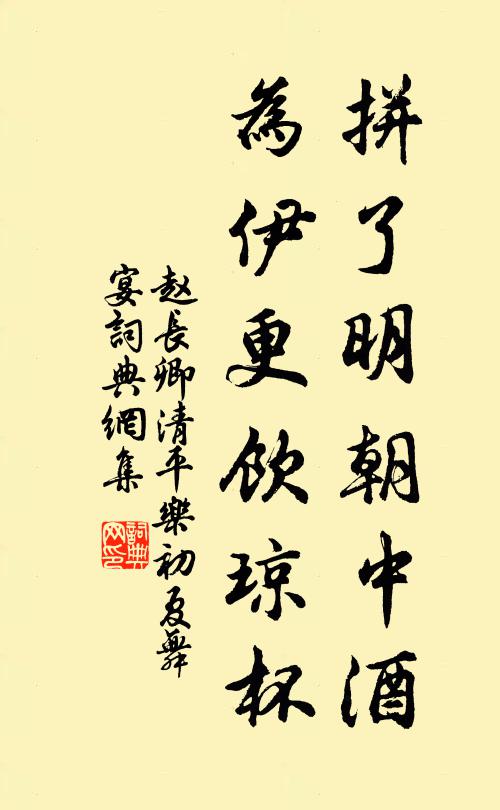 拼了明朝中酒
為伊更飲琼杯
赵長卿清平樂初夏舞
宴詞典網集
詞典网印